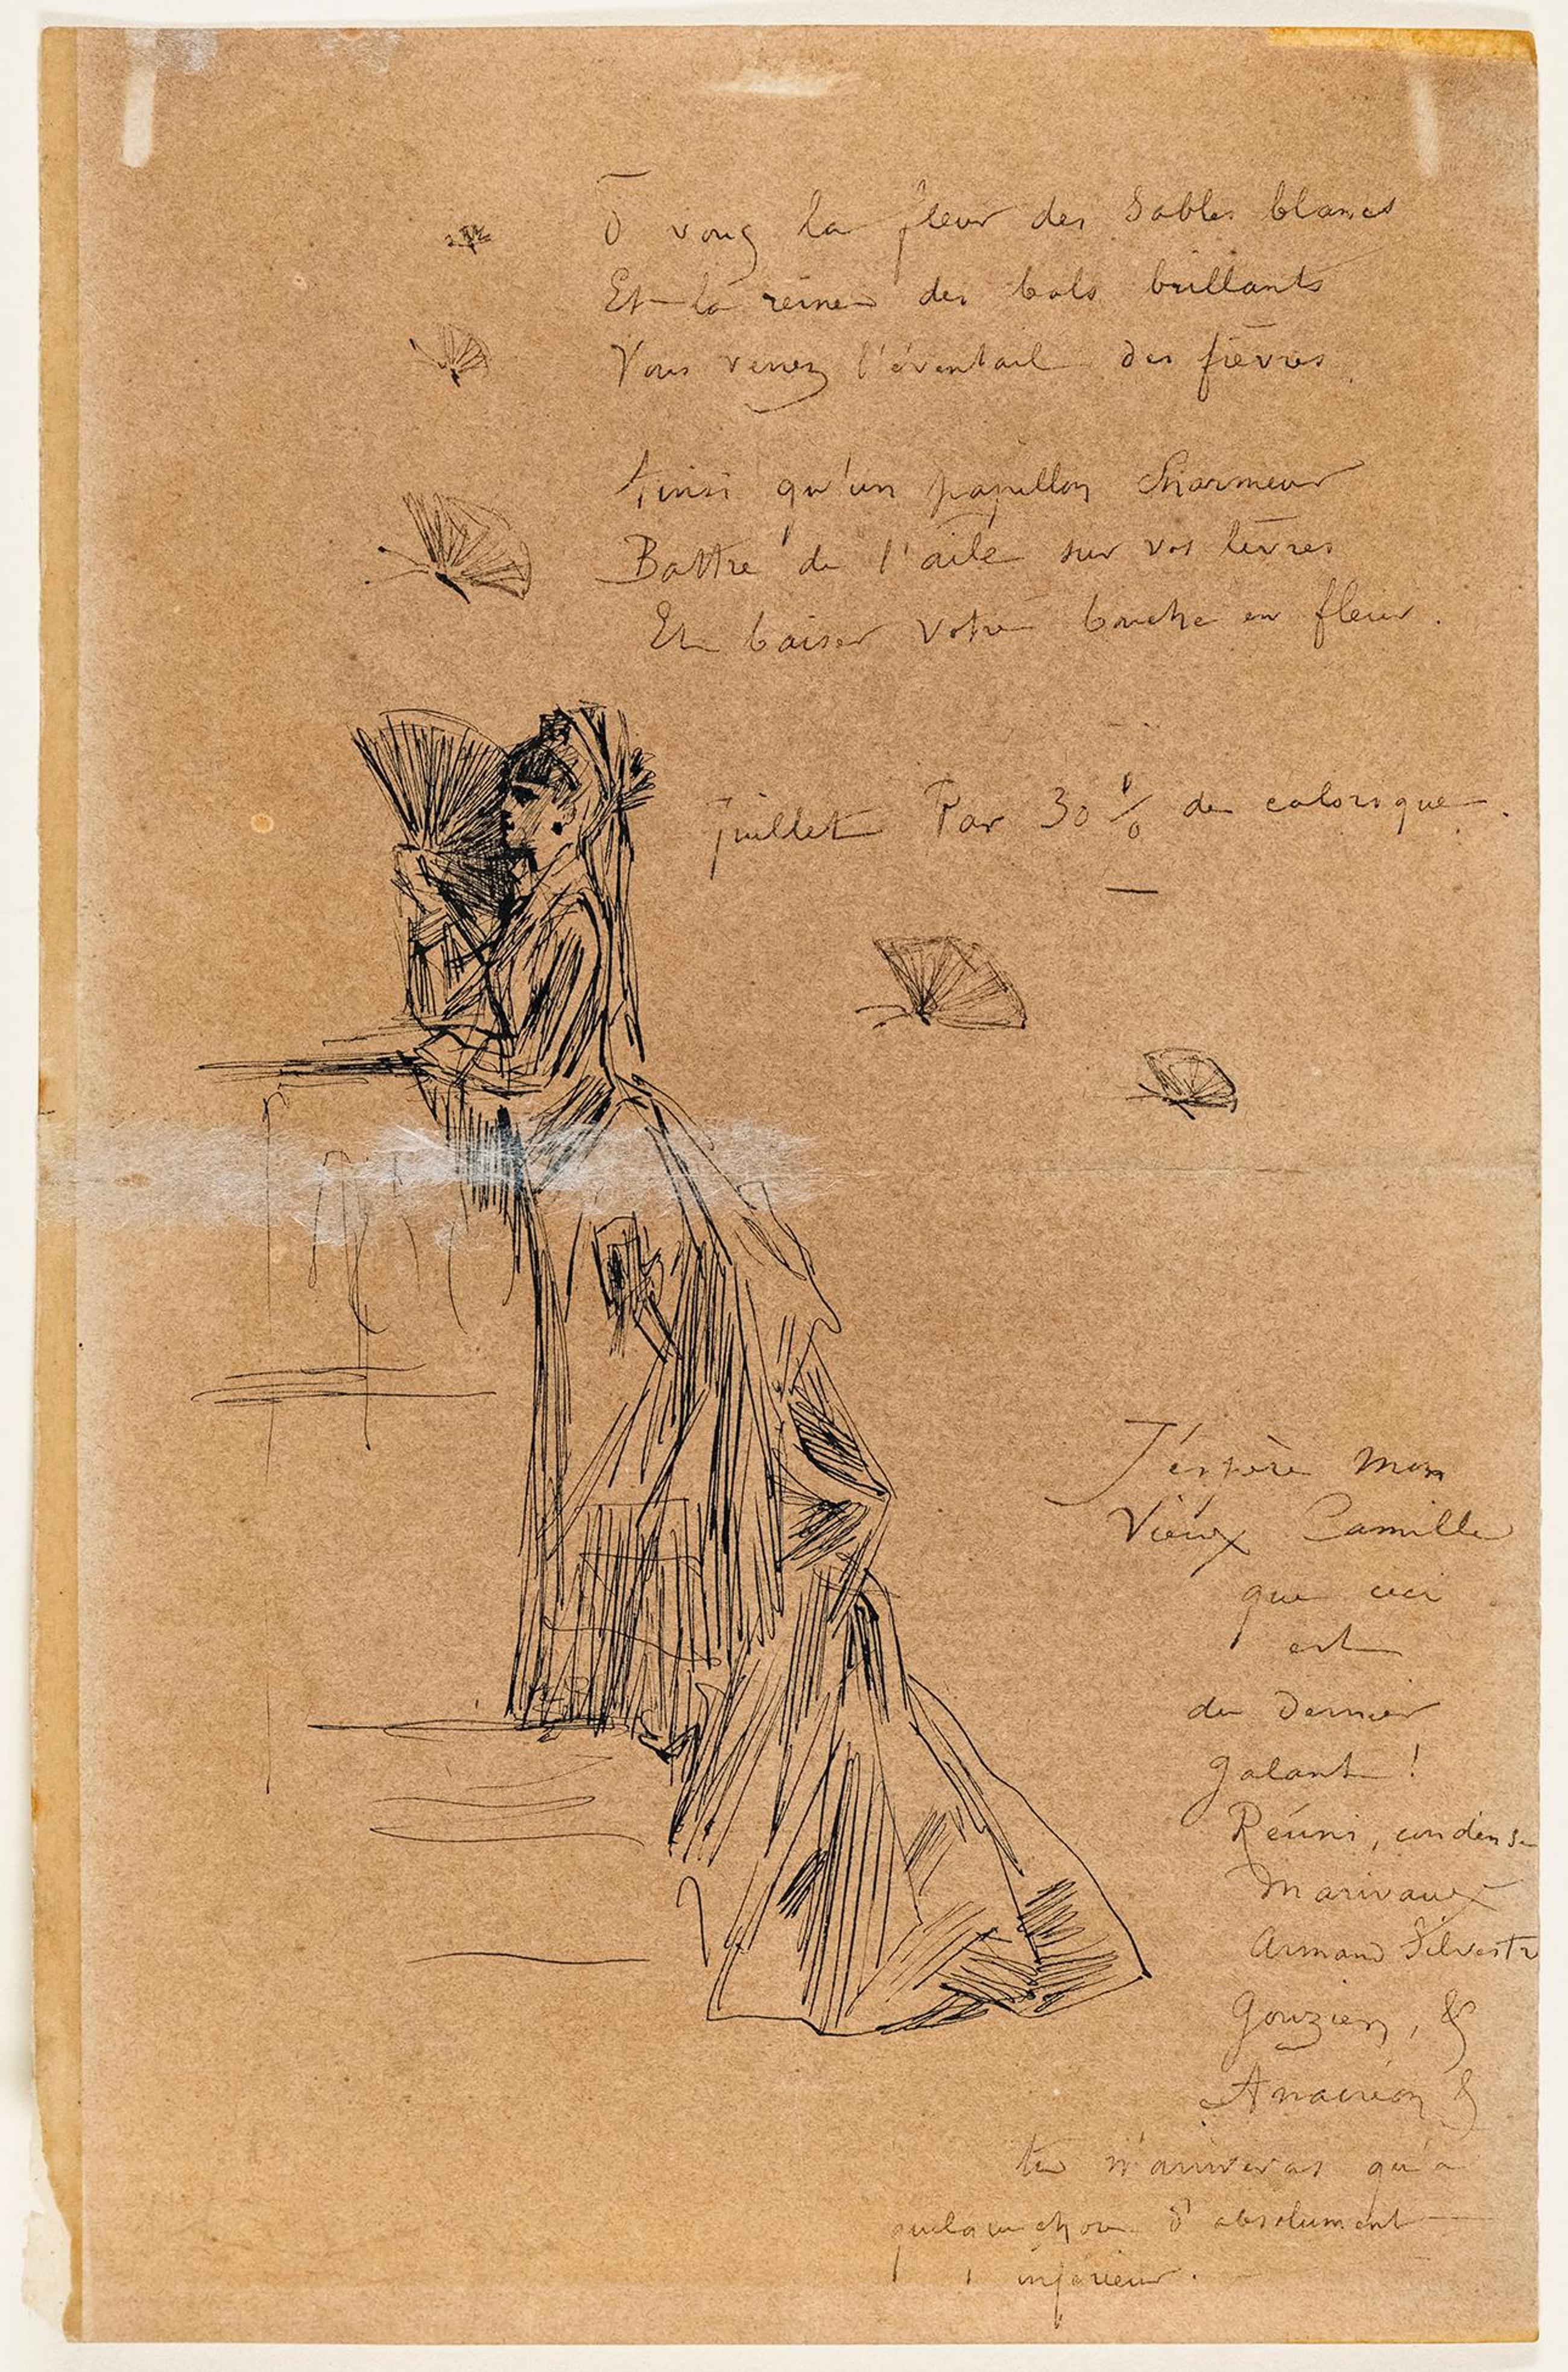 Ô vous la fleur des Sables blancs
Et la reine des bals brillants
Vous verrez l'éventail des fièvres
Ainsi qu'un papillon Charmeur
Battre de l'aile sur vos lèvres
Et baiser votre bouche en fleur.
Juillet Par 30 % de calorique.
J'éspère mon
Vieux Camille
que ceci
est
du Dernier
galant !
Réunis, condense
Marivaux
Armand Silvestre
Gouzien, &
Anacréon &
tu n'arriveras qu'a
quelque chose d'absolument
inférieur.